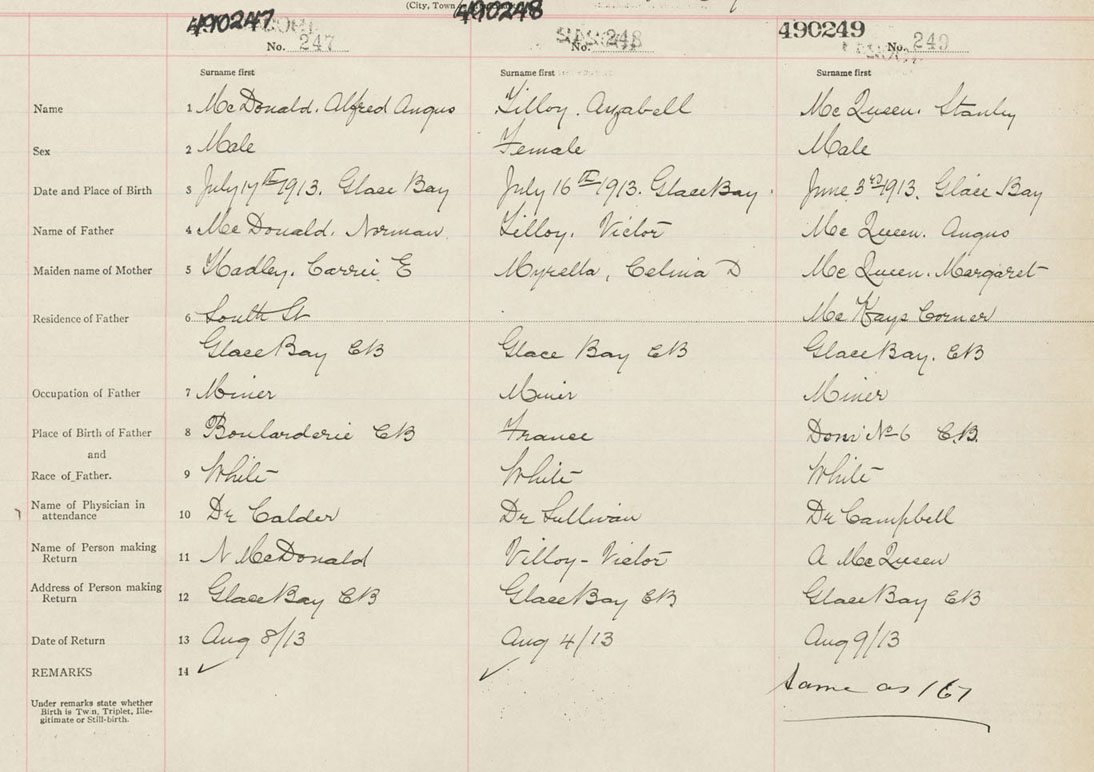 (City, Town
490247 490248 490249
No. 247 No. 248 No. 249
Surname first Surname first Surname first
Name 1 McDonald. Alfred Angus Lilloy. Anabell McQueen. Stanley
Sex 2 Male Female Male
Date and Place of Birth 3 July 17th 1913. Glace Bay July 16th 1913. Glace Bay. June 3rd 1913. Glace Bay
Name of Father 4 McDonald. Norman Lilloy. Victor McQueen. Angus
Maiden name of Mother 5 Hadley. Carrie E Myrella, Celina D McQueen. Margaret
Residence of Father 6 South St McKays Corner
Glace Bay CB Glace Bay CB Glace Bay. CB
Occupation of Father 7 Miner Miner Miner
Place of Birth of Father 8 Boularderie CB France Dom No 6 C.B.
and
Race of Father. 9 White White White
Name of Physician in
attendance 10 Dr Calder Dr Sullivan Dr Campbell
Name of Person making
Return 11 N McDonald Villoy - Victor A McQueen
Address of Person making
Return 12 Glace Bay CB Glace Bay CB Glace Bay CB
Date of Return 13 Aug 8/13 Aug 4/13 Aug 9/13
REMARKS 14 ✓ ✓ Same as 167
Under remarks state whether
Birth is Twin, Triplet, Ille-
gitimate or Still-birth.